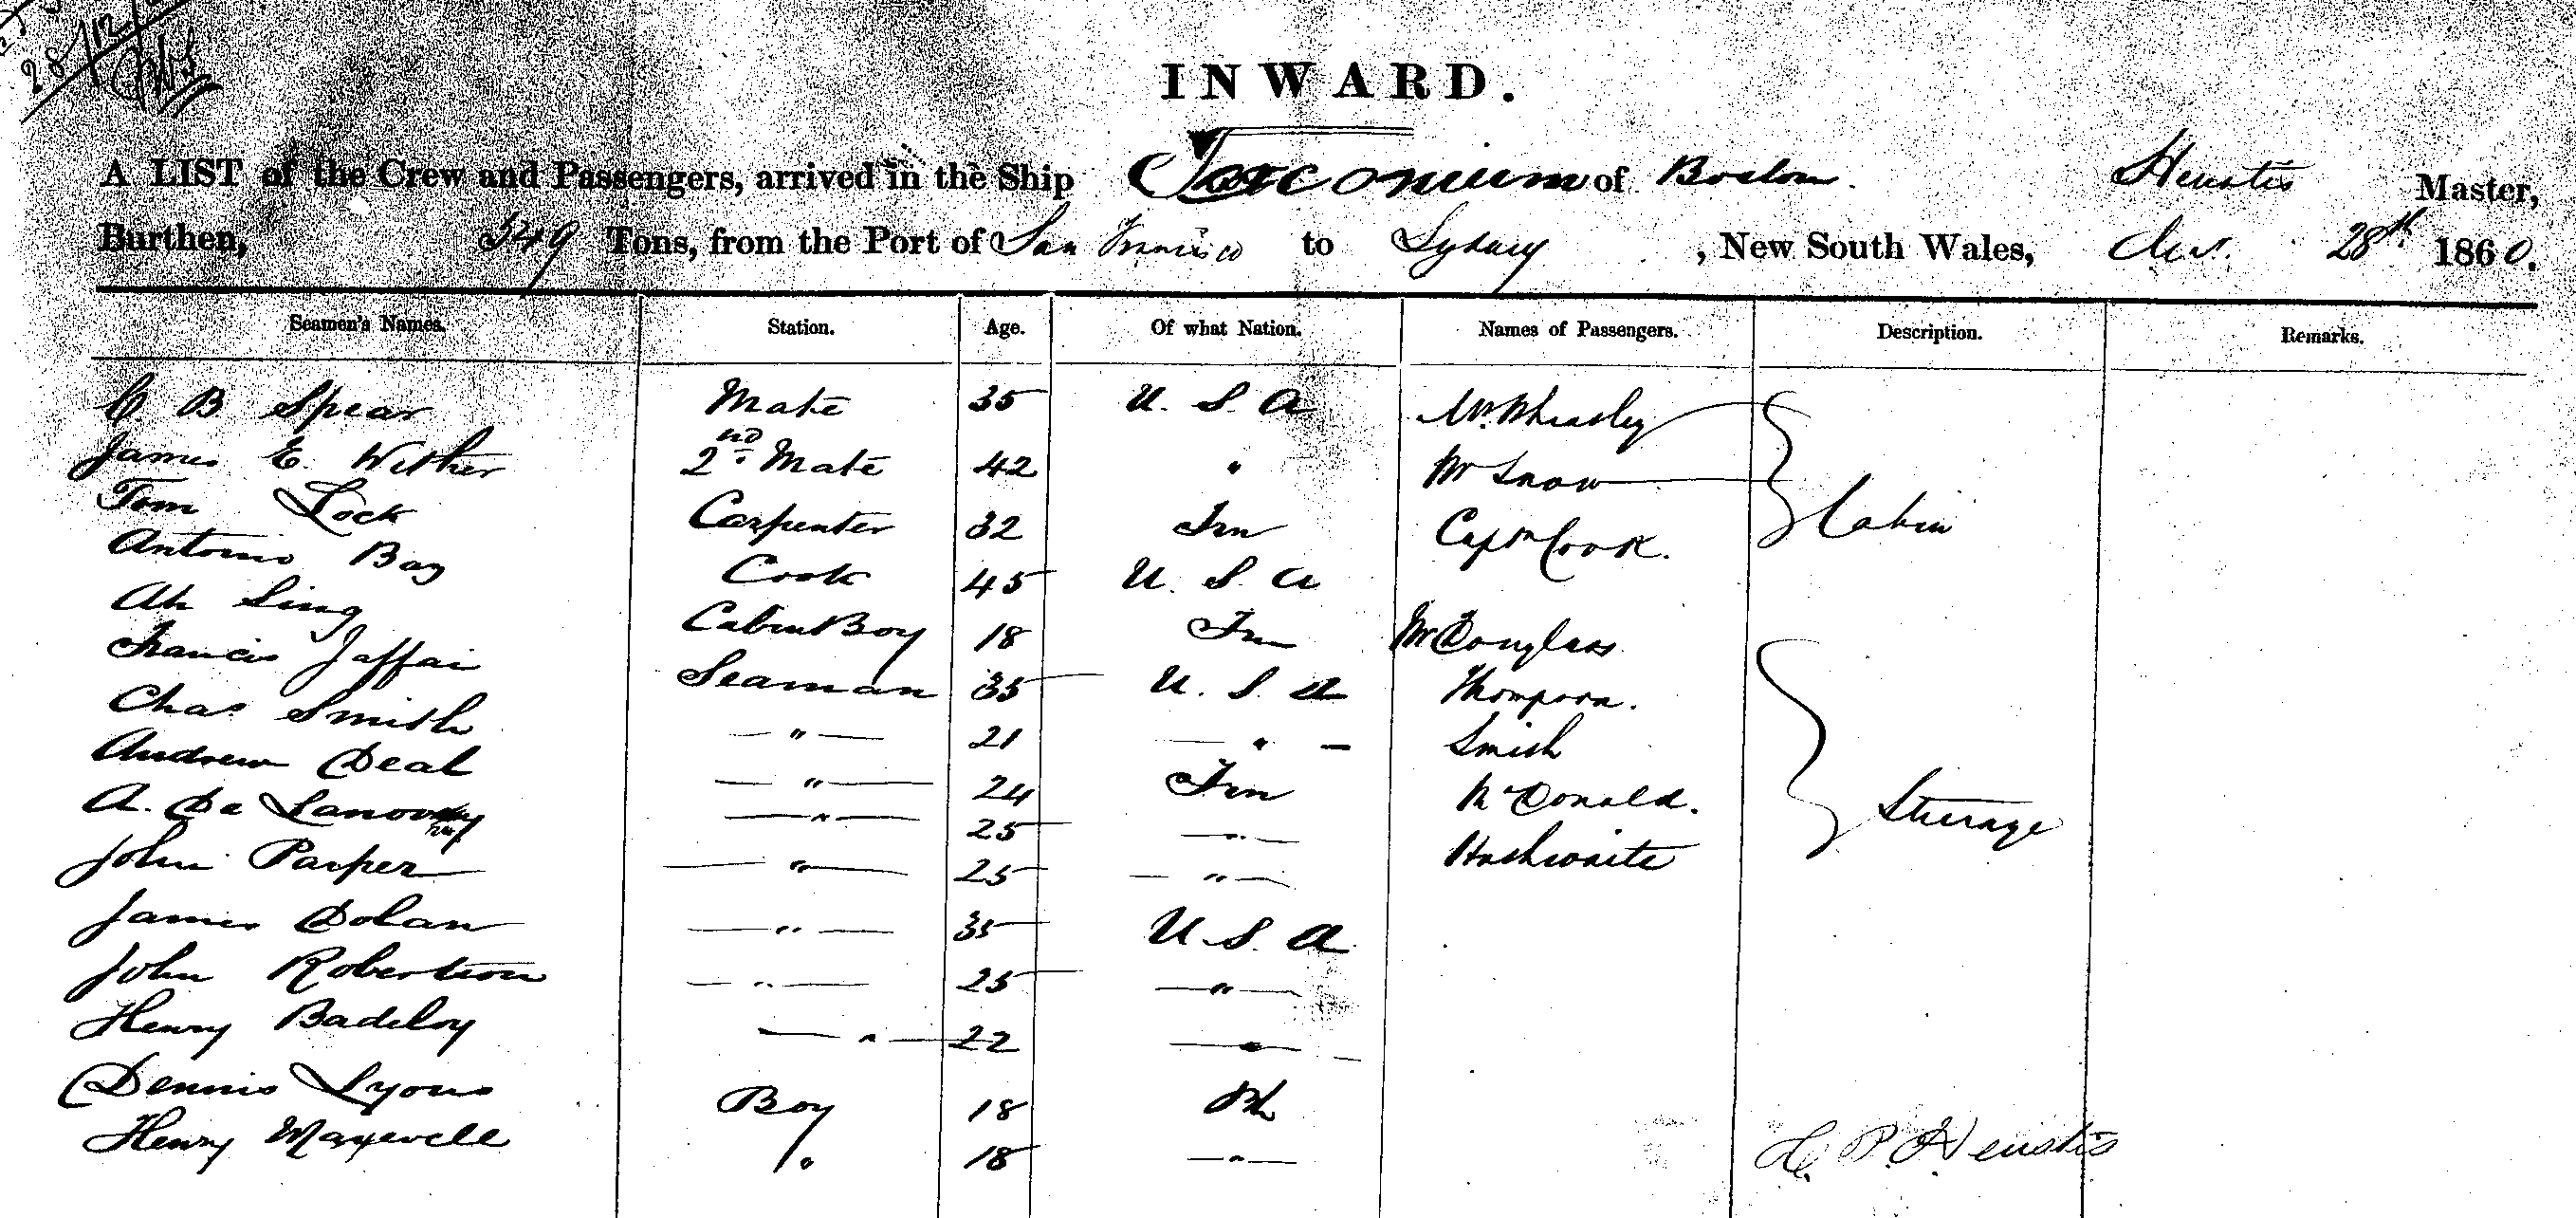 28/12
INWARD.
A LIST of the Crew and Passengers, arrived in the Ship Tarconium of Boston. Heustis Master,
Burthen, 549 Tons, from the Port of San Francisco to Sydney, New South Wales, 28th 1860.
Seamen's Names. Station. Age. Of what Nation. Names of Passengers. Description. Remarks.
C B Spear Mate 35 U. S. A Mr. Wheatley
James E. Wither 2nd Mate 42 " Mr Snow
Tom Lock Carpenter 32 Frn Captn Cook. Cabin
Antonio Bay Cook 45 U. S. A
Ah Sing Cabin Boy 18 Frn Mr Douglass
Francis Jaffai Seaman 35 U. S. A Thompson.
Chas Smith — " — 21 — " — Smith
Andrew Deal — " — 24 Frn McDonald.
A. De — " — 25 — " — Hashwaite Steerage
John Parper — " — 25 — " —
James Dolan — " — 35 U. S. A.
John Robertson — " — 25 — " —
Henry Badeloy — " — 22 — " —
Dennis Lyons Boy 18 Bh
Henry Maxewell " 18 — " —
P. Heustis